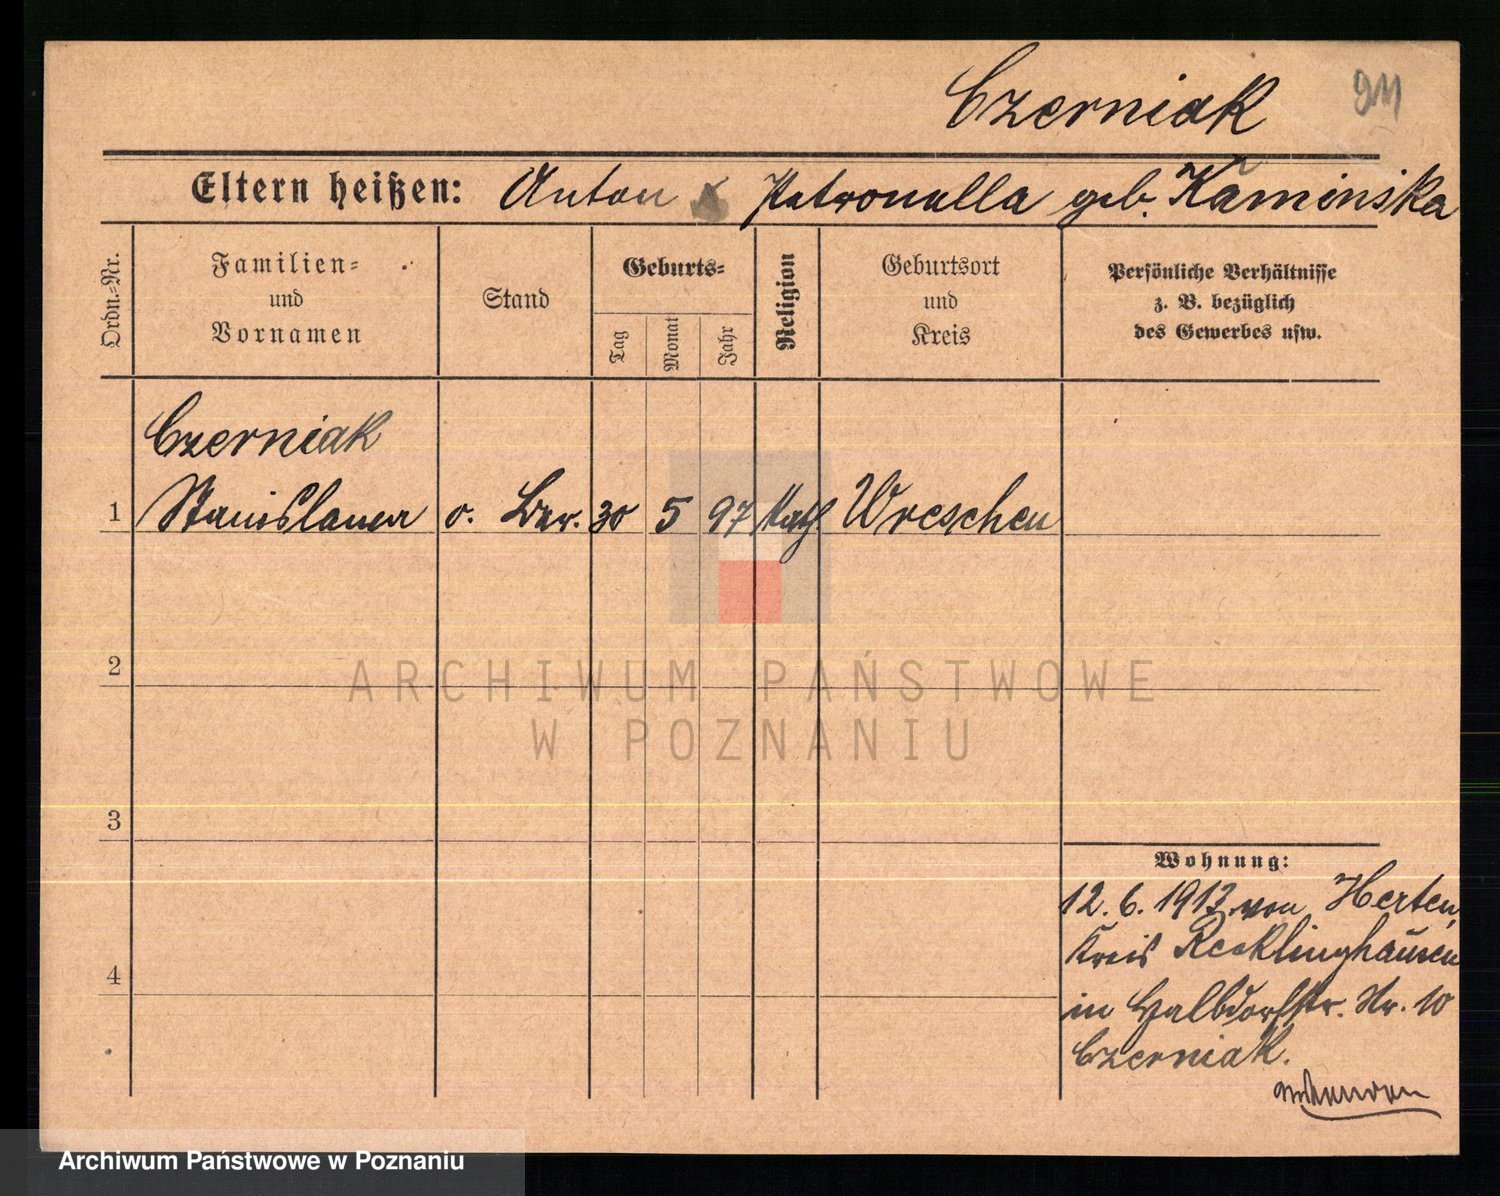 Czerniak 911
Eltern heißen: Anton x Petronella geb. Kaminska
Ordn.=Nr.
Familien=
und
Vornamen
Stand
Geburts=
Tag
Monat
Jahr
Religion
Geburtsort
und
Kreis
Persönliche Verhältnisse
z. B. bezüglich
des Gewerbes usw.
Czerniak
1 Stanislawa o. Ber. 30 5 97 kath. Wreschen
2
3
4
Wohnung:
12.6.1913 von Herten,
Kreis Recklinghausen
in Halbdorfstr. Nr. 10
Czerniak.
ARCHIWUM PAŃSTWOWE
W POZNANIU
Archiwum Państwowe w Poznaniu